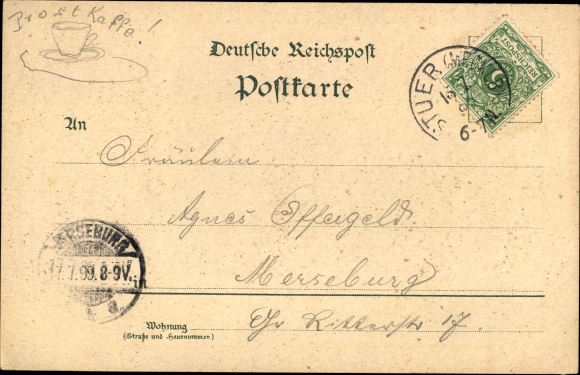 Prost Kaffe!
Deutsche Reichspost
Postkarte
STUER
6-7N.
REICHSPOST
5
An
Fräulein
Agnes Offergeld
MERSEBURG
17.7.99.8-9V.
in Merseburg
Wohnung
(Straße und Hausnummer.)
Gr. Ritterstr 17.